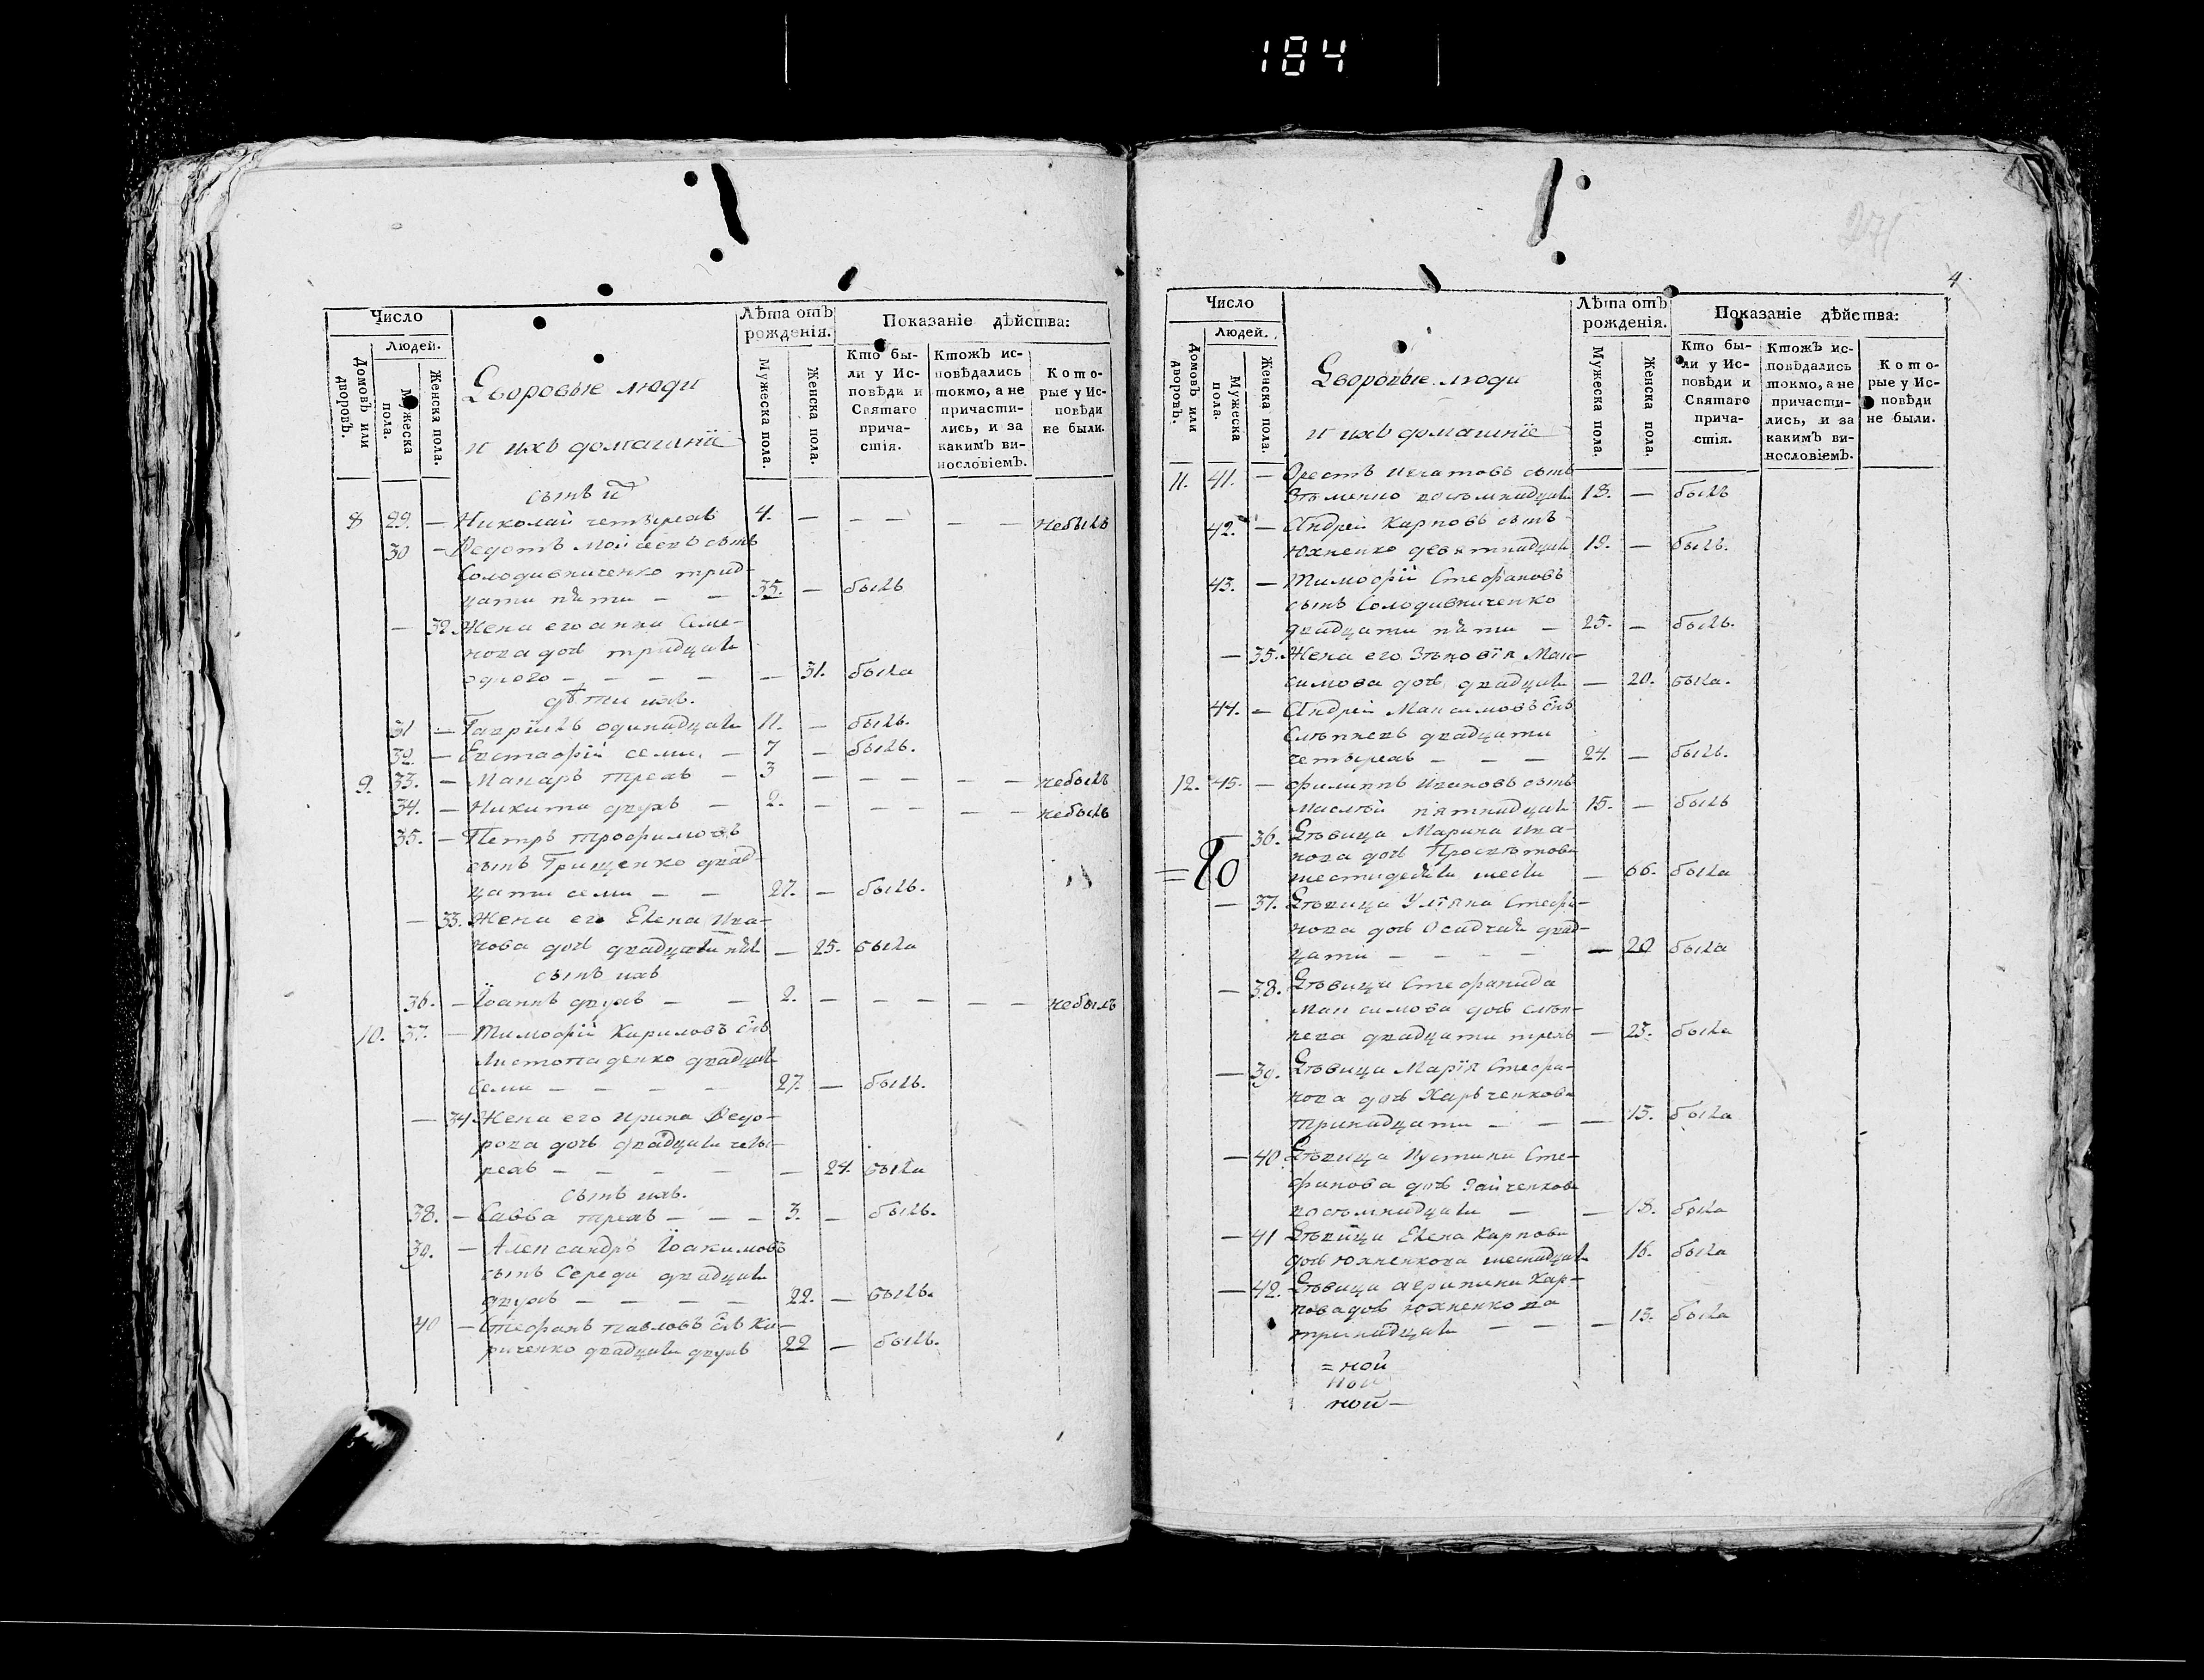 184
271
4
Число
Людей.
Домовъ или дворовъ.
Мужеска пола.
Женска пола.
Дворовые люди
и ихъ домашнїе
Лѣта отъ рожденія.
Мужеска пола.
Женска пола.
Показаніе дѣйства:
Кто были у Исповѣди и Святаго причастія.
Ктожъ исповѣдались токмо, а не причастились, и за какимъ винословіемъ.
Которые у Исповѣди не были.
сынъ
8 29. — Николай четырехъ 4. — — — — — небылъ
30 — Федотъ Мойсеевъ сынъ
Солодивниченко трид-
цати пяти — — 35. — былъ
— 32 Жена его анна Семе-
нова дочь тридцати
одного — — — — — 31. была
дѣти ихъ.
31 — Гаврїилъ одинадцати 11. — былъ.
32 — Евстафїй семи. — 7 — былъ.
9. 33. — Макаръ трехъ — 3 — — — — — небылъ
34. — Никита двухъ — 2. — — — — — небылъ
35. — Петръ трофимовъ
сынъ Грищенко двад-
цати семи — — 27. — былъ.
— 33. Жена его Елена Ива-
нова дочь двадцати пяти — 25. была
сынъ ихъ
36. — Їоаннъ двухъ — — 2. — — — — — небылъ
10. 37. — Тимофїй Кириловъ снъ
Листопаденко двадцати
семи — — — — 27. — былъ.
— 34 Жена его Ирина Федо-
рова дочь двадцати четы-
рехъ — — — — — 24. была
сынъ ихъ.
38. — Савва трехъ — — — 3. — былъ.
39. — Александръ Їоакимовъ
сынъ Середа двадцати
двухъ — — — — 22. — былъ.
40 — Стефанъ павловъ снъ Ки-
риченко двадцати двухъ 22 — былъ.
Число
Людей.
Домовъ или дворовъ.
Мужеска пола.
Женска пола.
Дворовые люди
и ихъ домашнїе
Лѣта отъ рожденія.
Мужеска пола.
Женска пола.
Показаніе дѣйства:
Кто были у Исповѣди и Святаго причастія.
Ктожъ исповѣдались токмо, а не причастились, и за какимъ винословіемъ.
Которые у Исповѣди не были.
11. 41. — Орестъ Игнатовъ сынъ
восьмнадцати 18. — былъ
42. — Андрей Карповъ сынъ
Юхненко девятнадцати 19. — былъ.
43. — Тимофїй Стефановъ
сынъ Солодивниченко
двадцати пяти — 25. — былъ.
— 35. Жена его Зѣновїя Мак-
симова дочь двадцати — 20. была.
44. — Андрей Максимовъ снъ
Слѣпневъ двадцати
четырехъ — — — 24. — былъ.
12. 45. — филиппъ Ивановъ сынъ
Маслѣй пятнадцати 15. — былъ
— 36. Дѣвица Марина Ива-
нова дочь
шестидесяти шести — 66. была
=80
— 37. Дѣвица Улїяна Стефа-
нова дочь двад-
цати — — — — — 20 была
— 38. Дѣвица Стефанида
Максимова дочь слѣп-
нева двадцати трехъ — 23. была
— 39. Дѣвица Марїя Стефа-
нова дочь Харченкова
тринадцати — — — 13. была
— 40 Дѣвица Иустина Сте-
фанова дочь Зайченкова
восьмнадцати — — 18. была
— 41 Дѣвица Елена Карпова
дочь Юхненкова шеснадцати 16. была
— 42. Дѣвица агрипина Кар-
пова дочь Юхненкова
тринадцати — — — 13. была
=ной
ной
ной—